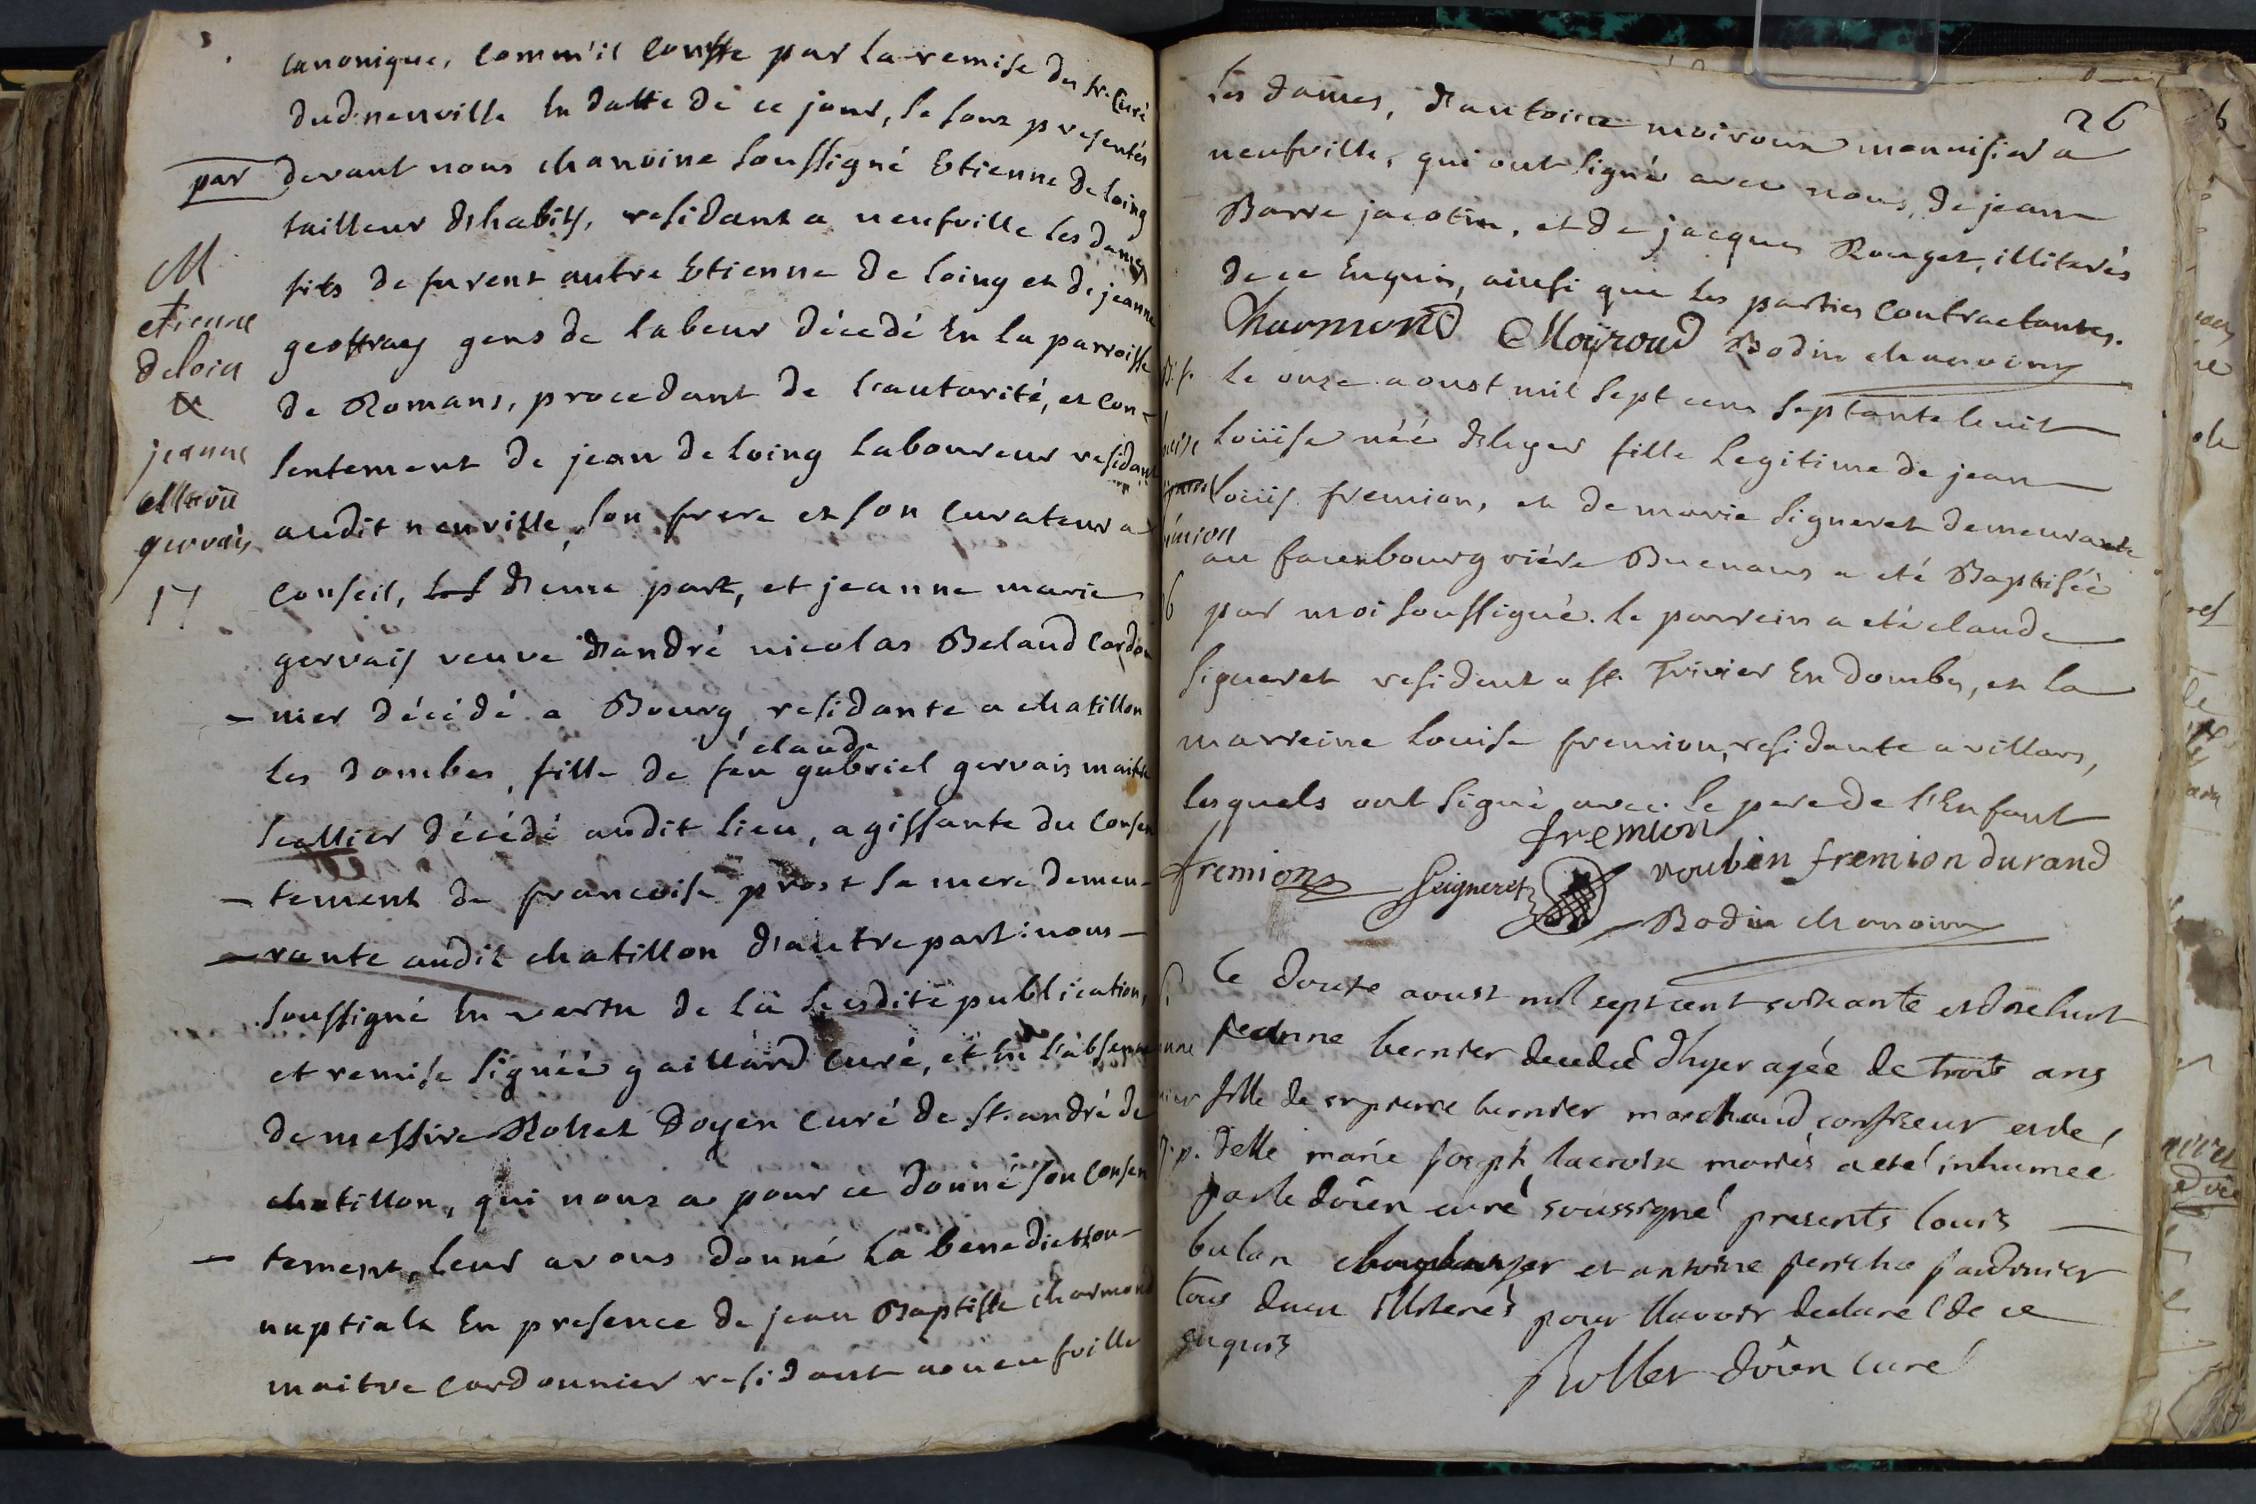 canonique, comm'il conste par la remise du sr. Curé
dud. neuville en datte de ce jour, se sont presentés
par devant nous chanoine soussigné Etienne de loing
tailleur d'habits, residant a neufville les dames
fils de furent autre Etienne de loing et de jeanne
geoffray gens de labeur décedé En la parroisse
de Romans, procedant de l'autorité, et con-
sentement de jean de loing laboureur residant
audit neuville, son frere et son curateur a
conseil, d'eune part, et jeanne marie
gervais veuve d'andré nicolas Beland cordo-
-nier décédé a Bourg residante a chatillon
claude
les dombes, fille de feu gabriel gervais maitre
sellier décédé audit lieu, agissante du consen
-tement de francoise prost sa mere demeu-
-rante audit chatillon d'autre part: nous-
soussigné En vertu de la susdite publication,
et remise signéé gaillard curé, et En l'absence
de messire Rollet doyen curé de st. andré de
chatillon, qui nous a pour ce donné son consen
-tement, leur avons donné la benediction-
nuptiale En presence de jean Baptiste charmond
maitre cordonnier residant a neufville
M
etienne
deloin
&
jeanne
marie
gervais
17
26
les dames, d'antoine moiroux menuisier a
neufville, qui ont signé avec nous, de jean
Barre jacotin, et de jacques Rouget, illiterés
de ce Enquis, ainsi que les parties contractantes.
Charmond Moÿroud Bodin chanoine
Le onze aoust mil sept cens septante huit
Loüise néé d'hyer fille Legitime de jean
Loüis fremion, et de marie signeret demeurante
au fauxbourg viére Buenans a eté Baptiséé
par moi soussigné. le parrein a eté claude
signeret resident a st. Trivier En dombes, et la
marreine louise fremion, residante a villars,
lesquels ont signé avec le pere de l'Enfant
fremion
fremion Seigneret roubin fremion durand
Bodin chanoine
Le douze aoust mil sept cent soixante et dix huit
jeanne bernier decedeé d'hyer ageé de trois ans
fille de sr pierre bernier marchand confiseur et de
delle marie joseph lacroix mariés a eté inhumeé
par le doïen curé soussigné presents louis
bulan et antoine perriche jardinier
tous deux illiterés pour l'avoir declaré de ce
enquis
Rollet doïen curé